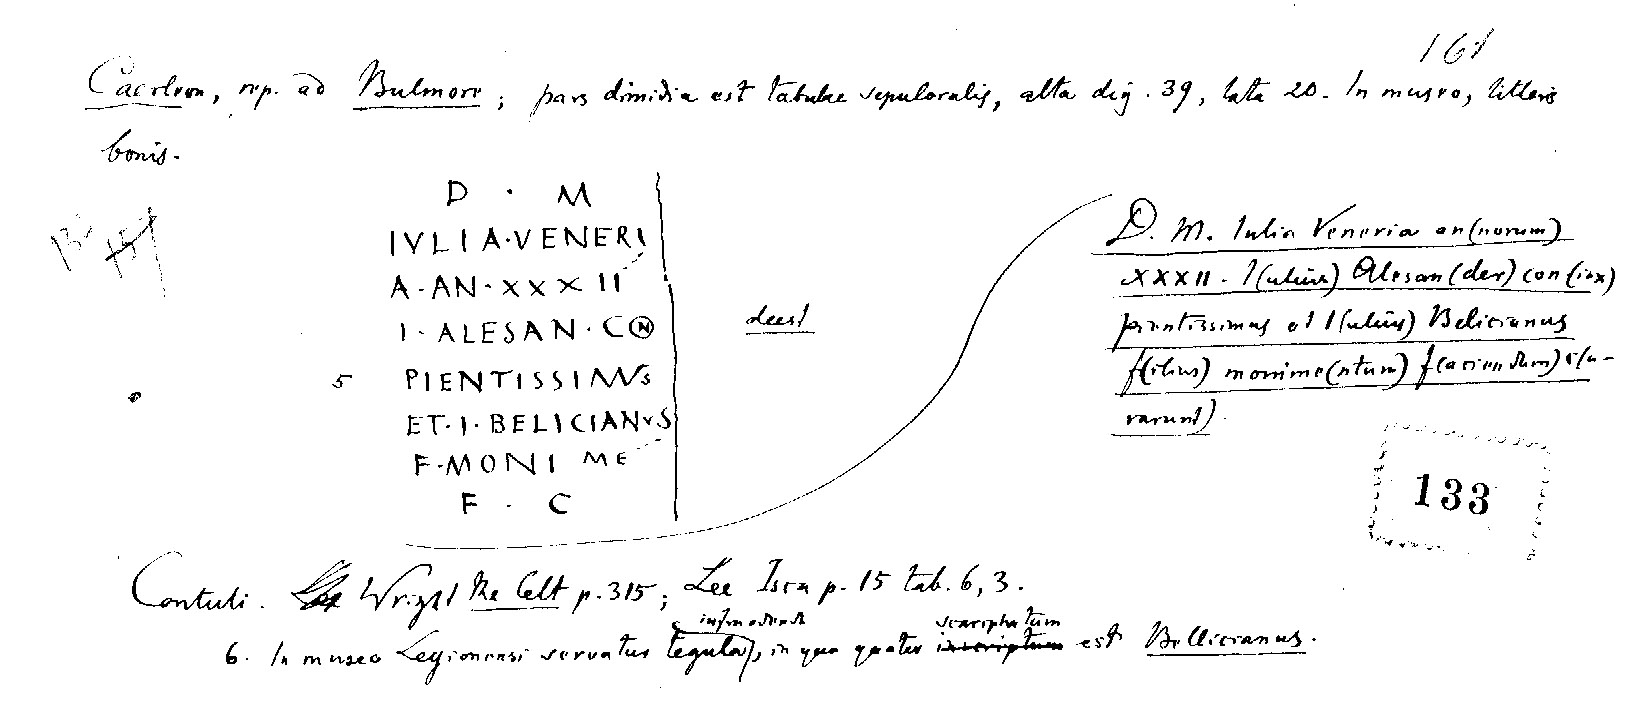 161
Caerleon, rep. ad Bulmore; pars dimidia est tabulae sepulcralis, alta dig. 39, lata 20. In museo, litteris
bonis.
D · M
IVLIA·VENERI
A·AN·XXXII
I·ALESAN·CON
5 PIENTISSIMVS
ET·I·BELICIANVS
F·MONIME
F · C
deest
D. M. Iulia Veneria an(norum)
XXXII. I(ulius) Alesan(der) con(iux)
pientissimus et I(ulius) Belicianus
f(ilius) monime(ntum) f(aciendum) c(u-
rarunt).
133
Contuli. Wright the Celt p. 315; Lee Isca p. 15 tab. 6, 3.
6. In museo Legionensi servatur tegula, in qua quater scariphatum est Bellicianus.